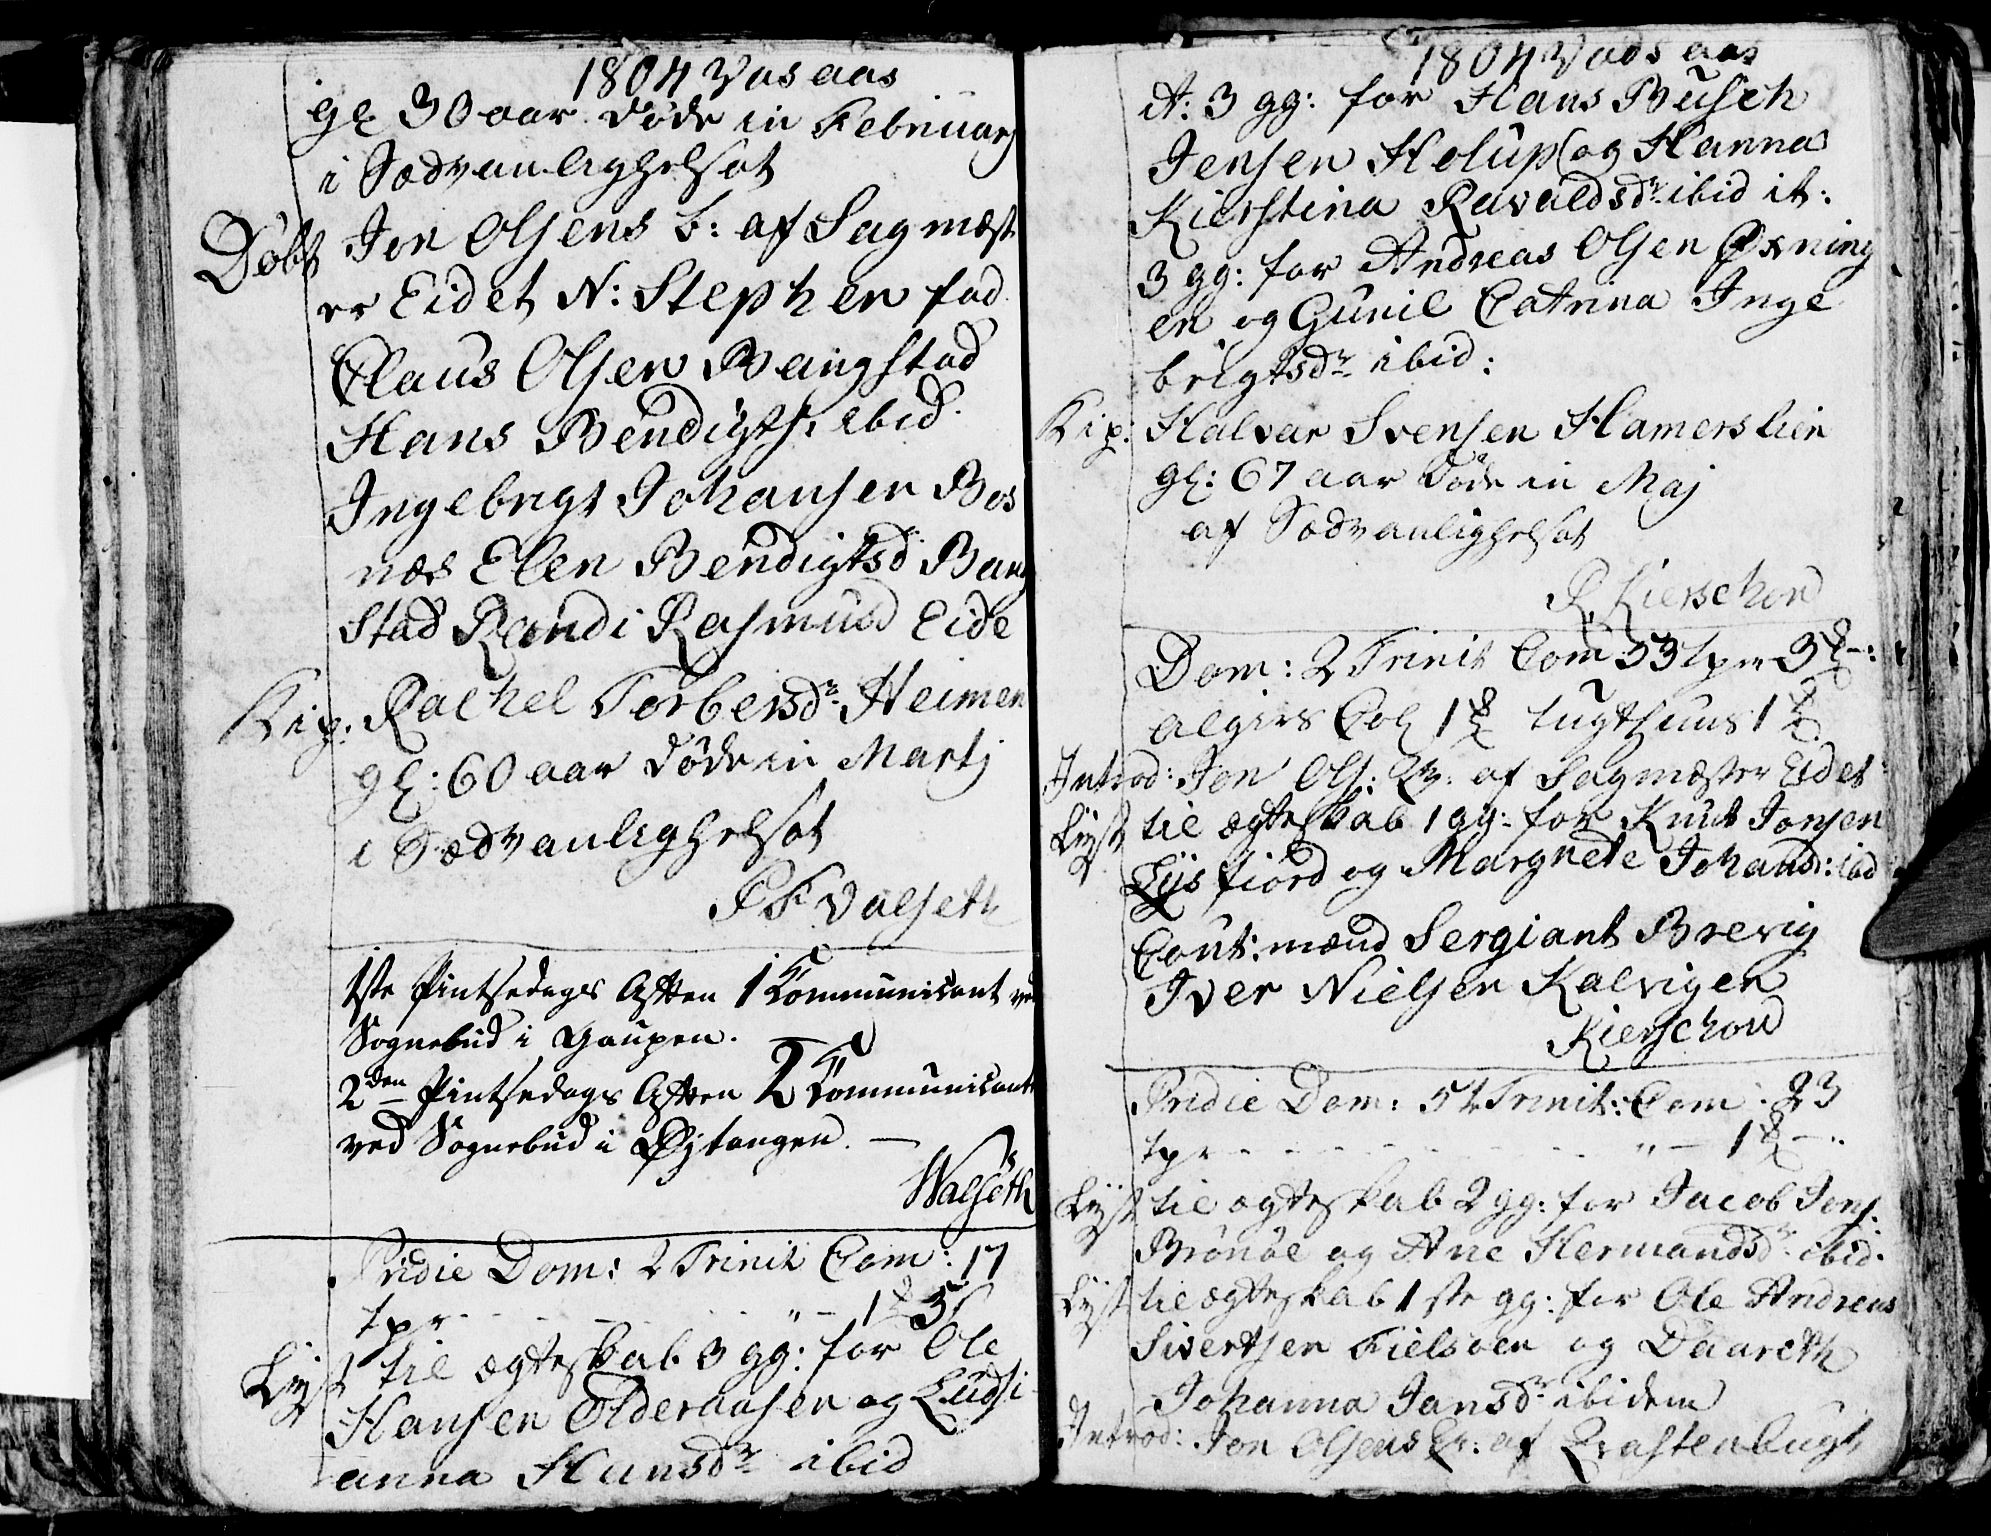 1804 Vas aas
gl 30 aar døde in Februarj
i Sædvanlighelsot
Døbt Jon Olsens b: af Sagmæst
er Eidet N: Stephen fad
Claus Olsen Bangstad
Hans Bendigts. ibid.
Ingebrigt Johansen Bos
næs Elen Bendigtsd Bang
stad Randi Rasmusd Eide
Kip: Rachel Torbersdr Heimen
gl: 60 aar døde in Martj
i Sædvanlighelsot
P F Valseth
1ste Pintsedags Aften 1 Kommunicant ved
Sognebud i Gaupen.
2den Pintsedags Aften 2 Kommunicant
ved Sognebud i Øjtangen. —
Walseth
Pridie Dom: 2 Trinit Com: 17
tpr
Lyst til ægteskab 3 gg: for Ole
Hansen Olderaasen og Ludsi
anna Hansdr ibid
1804 Vads aas
it: 3 gg: for Hans Busch
Jensen Holup og Hanna
Kierstina Ravaldsdr ibid it:
3 gg: for Andreas Olsen Øxning
en og Gunil Catrina Inge
brigtsdr ibid:
Kip: Halvar Svensen Hamerslien
gl: 67 aar døde in Maj
af Sædvanlighelsot
R Kierschou
Dom: 2 Trinit Com 33 tpr 3
algirs Col 1 tugthuus 1
Introd: Jon Ols: Qv: af Sagmæster Eidet
Lyst til ægteskab 1 gg: for Knut Jonsen
Lysfiord og Margrete Johansd: ibd
Caut: mænd Sergiant Brevig
Iver Nielsen Kalvigen
Kierschou
Pridie Dom: 5t Trinit: Com: 23
tpr " — 1
Lyst til ægteskab 2 gg: for Jacob Jons.
Brønøe og Ane Hermandsdr ibid.
Lyst til ægteskab 1ste gg: for Ole Andreas
Sivertsen Fielsøen og Daareth
Johanna Jansdr ibidem
Introd: Jon Olsens Qv: af